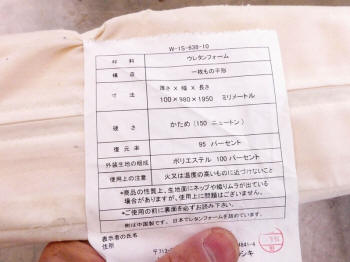 W-IS-630-10
材料 ウレタンフォーム
構造 一枚もの平形
寸法 厚さ × 幅 × 長さ
100×980×1950 ミリメートル
硬さ かため (150 ニュートン)
復元率 95 パーセント
外装生地の組成 ポリエステル 100 パーセント
使用上の注意 火又は温度の高いものに近づけないこと
*商品の性質上、生地面にネップや織りムラが出ている
場合がありますが、使用上に問題はございません。
*ご使用の前に裏面を必ずお読み下さい。
側は中国製です。日本でウレタンフォームを詰めています。
表示者の氏名
住所
〒312-
4841-4
シキ